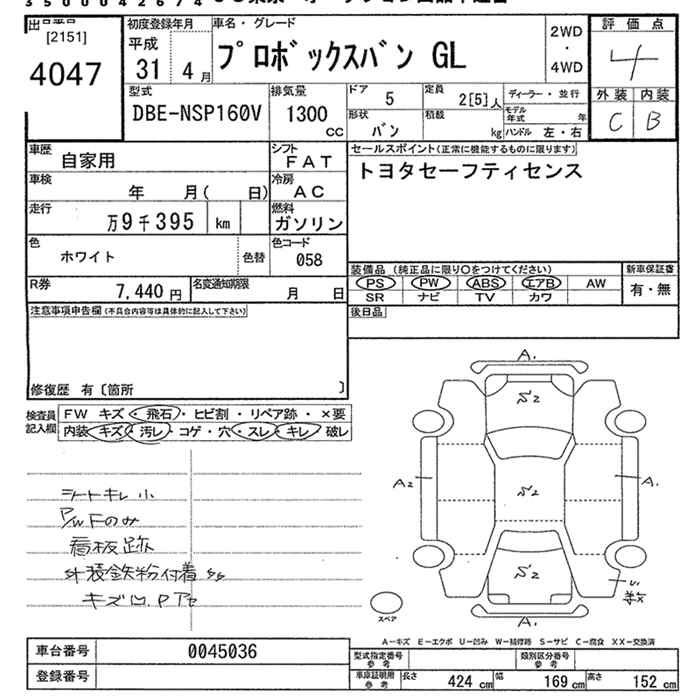 3500042674
出品番号
[2151]
4047
初度登録年月
平成
31 4月
車名・グレード
プロボックスバン GL
2WD
・
4WD
評価点
4
外装 内装
C B
型式
DBE-NSP160V
排気量
1300
CC
ドア
5
定員
2[5]人
ディーラー・並行
形状
バン
積載
kg
モデル年式 年
ハンドル 左・右
車歴
自家用
シフト
FAT
セールスポイント(正常に機能するものに限ります)
トヨタセーフティセンス
車検
年 月( 日)
冷房
AC
走行
万9千395 km
燃料
ガソリン
色
ホワイト
色替
色コード
058
装備品 (純正品に限り○をつけてください)
新車保証書
PS PW ABS エアB AW
有・無
SR ナビ TV カワ
R券
7,440円
名変通知期限
月 日
後日品
注意事項申告欄(不具合内容等は具体的に記入して下さい)
修復歴 有〔箇所 〕
検査員
記入欄
FW キズ・飛石・ヒビ割・リペア跡・×要
内装 キズ・汚レ・コゲ・穴・スレ・キレ・破レ
シートキレ小
P/WFのみ
看板跡
外装鉄粉付着
A.
A2
A.
A.
スペア
A－キズ E－エクボ U－凹み W－補修跡 S－サビ C－腐食 XX－交換済
車台番号
0045036
登録番号
型式指定番号
参考
類別区分番号
参考
車庫証明用
参考
長さ 424 cm 幅 169 cm 高さ 152 cm